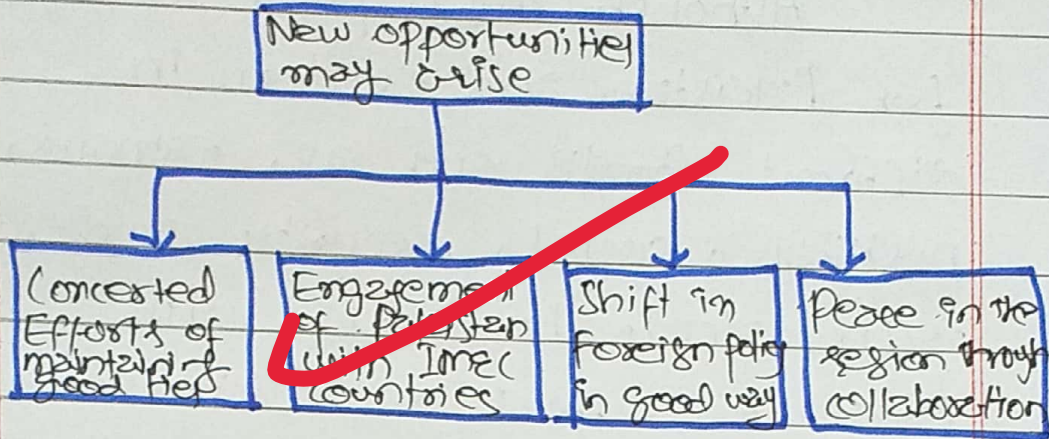 New opportunities
may arise
Concerted
Efforts of
maintaining
good ties
Engagement
of Pakistan
with IMEC
countries
Shift in
foreign policy
in good way
Peace in the
region through
collaboration